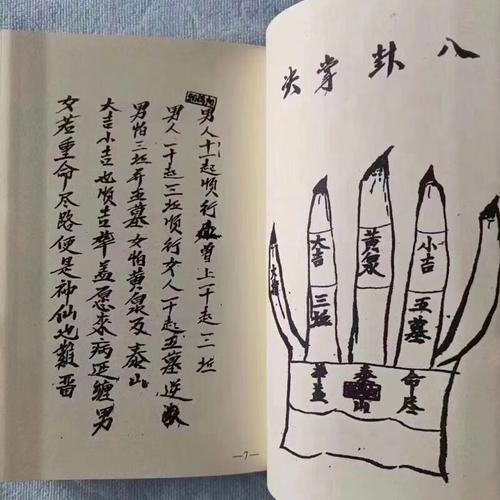 男人十一起順行上一十起三坵
男人一十起三坵順行女人一十起五墓逆
男怕三坵并五墓女怕黄泉及泰山
大吉小吉也順吉華盖愿來病延纏男
女若重命尽路便是神仙也難
—7—
八卦掌
大吉
三坵
黄泉
小吉
五墓
華盖
泰山
命尽